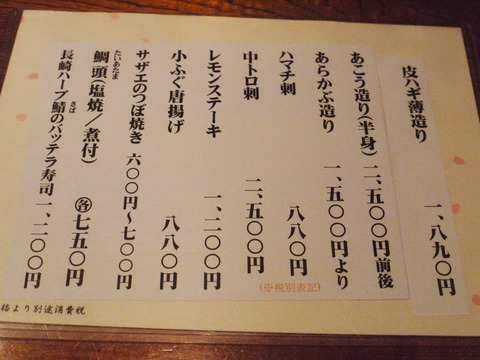 皮ハギ薄造り 一、八九〇円
あこう造り(半身) 二、五〇〇円前後
あらかぶ造り 一、五〇〇円より
ハマチ刺 八八〇円
(※税別表記)
中トロ刺 二、五〇〇円
レモンステーキ 一、二〇〇円
小ふぐ唐揚げ 八八〇円
サザエのつぼ焼き 六〇〇円〜七〇〇円
たいあたま
鯛頭(塩焼/煮付) 各七五〇円
さば
長崎ハーブ鯖のバッテラ寿司 一、二〇〇円
格より別途消費税